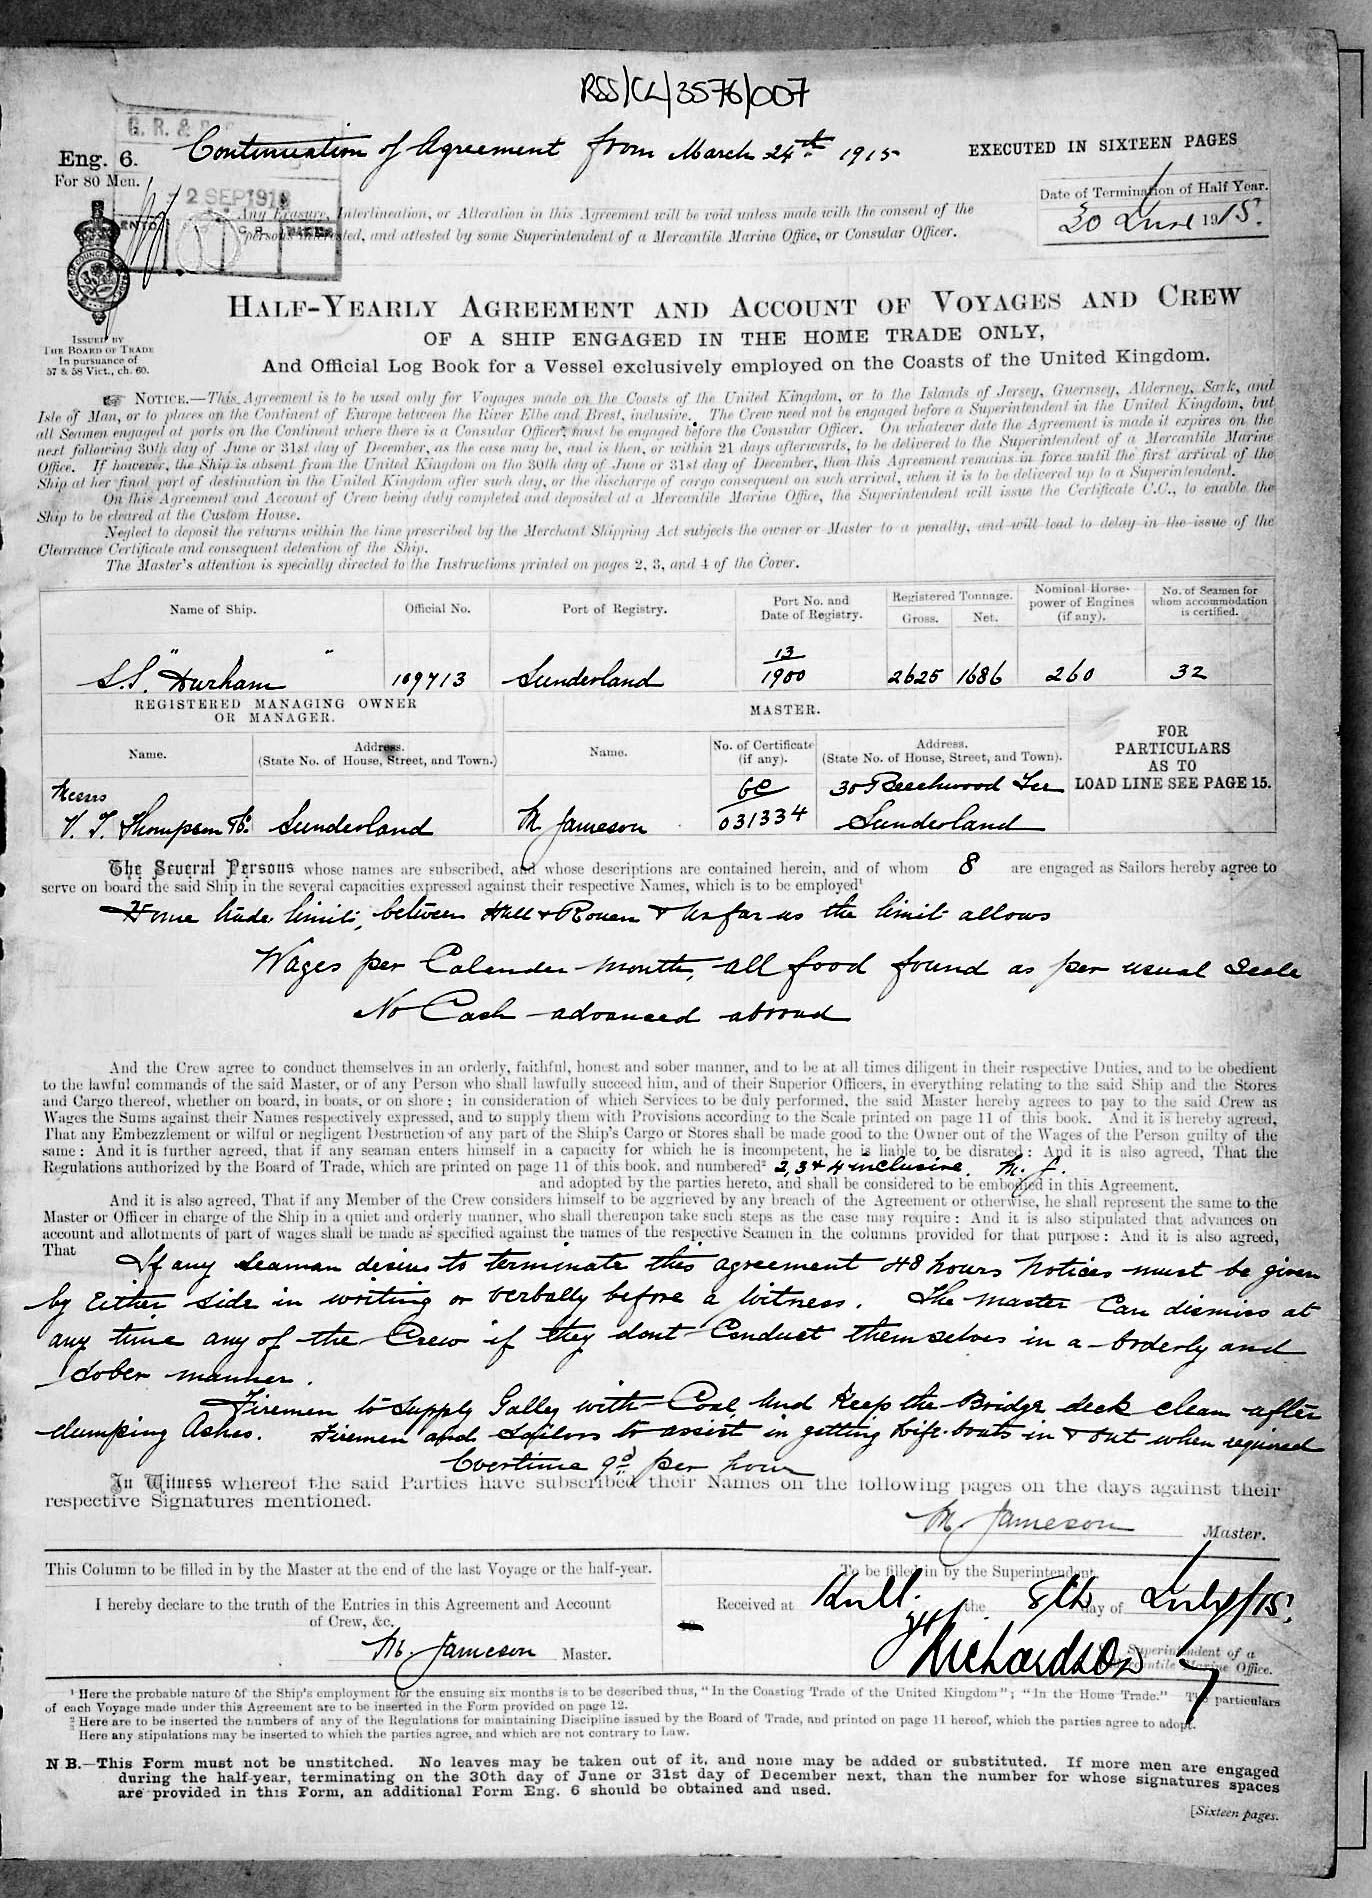 RSS/CL/3576/007
G. R. &
Continuation of Agreement from March 24th 1915
EXECUTED IN SIXTEEN PAGES
Eng. 6.
For 80 Men.
2 SEP 191
Date of Termination of Half Year.
30 June 1915.
Any Erasure, Interlineation, or Alteration in this Agreement will be void unless made with the consent of the
persons interested, and attested by some Superintendent of a Mercantile Marine Office, or Consular Officer.
HALF-YEARLY AGREEMENT AND ACCOUNT OF VOYAGES AND CREW
OF A SHIP ENGAGED IN THE HOME TRADE ONLY,
And Official Log Book for a Vessel exclusively employed on the Coasts of the United Kingdom.
ISSUED BY
THE BOARD OF TRADE
In pursuance of
57 & 58 Vict., ch. 60.
NOTICE.—This Agreement is to be used only for Voyages made on the Coasts of the United Kingdom, or to the Islands of Jersey, Guernsey, Alderney, Sark, and
Isle of Man, or to places on the Continent of Europe between the River Elbe and Brest, inclusive. The Crew need not be engaged before a Superintendent in the United Kingdom, but
all Seamen engaged at ports on the Continent where there is a Consular Officer, must be engaged before the Consular Officer. On whatever date the Agreement is made it expires on the
next following 30th day of June or 31st day of December, as the case may be, and is then, or within 21 days afterwards, to be delivered to the Superintendent of a Mercantile Marine
Office. If however, the Ship is absent from the United Kingdom on the 30th day of June or 31st day of December, then this Agreement remains in force until the first arrival of the
Ship at her final port of destination in the United Kingdom after such day, or the discharge of cargo consequent on such arrival, when it is to be delivered up to a Superintendent.
On this Agreement and Account of Crew being duly completed and deposited at a Mercantile Marine Office, the Superintendent will issue the Certificate C.C., to enable the
Ship to be cleared at the Custom House.
Neglect to deposit the returns within the time prescribed by the Merchant Shipping Act subjects the owner or Master to a penalty, and will lead to delay in the issue of the
Clearance Certificate and consequent detention of the Ship.
The Master's attention is specially directed to the Instructions printed on pages 2, 3, and 4 of the Cover.
Name of Ship. Official No. Port of Registry. Port No. and Date of Registry. Registered Tonnage. Gross. Net. Nominal Horse-power of Engines (if any). No. of Seamen for whom accommodation is certified.
S.S. "Durham" 109713 Sunderland 13/1900 2625 1686 260 32
REGISTERED MANAGING OWNER
OR MANAGER.
MASTER.
FOR
PARTICULARS
AS TO
LOAD LINE SEE PAGE 15.
Name. Address. (State No. of House, Street, and Town.) Name. No. of Certificate (if any). Address. (State No. of House, Street, and Town).
Messrs
V. T. Thompson & Co. Sunderland M. Jameson 031334 30 Beechwood Ter Sunderland
The Several Persons whose names are subscribed, and whose descriptions are contained herein, and of whom 8 are engaged as Sailors hereby agree to
serve on board the said Ship in the several capacities expressed against their respective Names, which is to be employed¹
Home trade limit, between Hull & Rouen & as far as the limit allows
Wages per Calender month, all food found as per usual Scale
No Cash advanced abroad
And the Crew agree to conduct themselves in an orderly, faithful, honest and sober manner, and to be at all times diligent in their respective Duties, and to be obedient
to the lawful commands of the said Master, or of any Person who shall lawfully succeed him, and of their Superior Officers, in everything relating to the said Ship and the Stores
and Cargo thereof, whether on board, in boats, or on shore; in consideration of which Services to be duly performed, the said Master hereby agrees to pay to the said Crew as
Wages the Sums against their Names respectively expressed, and to supply them with Provisions according to the Scale printed on page 11 of this book. And it is hereby agreed,
That any Embezzlement or wilful or negligent Destruction of any part of the Ship's Cargo or Stores shall be made good to the Owner out of the Wages of the Person guilty of the
same: And it is further agreed, that if any seaman enters himself in a capacity for which he is incompetent, he is liable to be disrated: And it is also agreed, That the
Regulations authorized by the Board of Trade, which are printed on page 11 of this book, and numbered² 2, 3 & 4 inclusive. M. J.
and adopted by the parties hereto, and shall be considered to be embodied in this Agreement.
And it is also agreed, That if any Member of the Crew considers himself to be aggrieved by any breach of the Agreement or otherwise, he shall represent the same to the
Master or Officer in charge of the Ship in a quiet and orderly manner, who shall thereupon take such steps as the case may require: And it is also stipulated that advances on
account and allotments of part of wages shall be made as specified against the names of the respective Seamen in the columns provided for that purpose: And it is also agreed,
That
If any Seaman desires to terminate this agreement 48 hours Notices must be given
by Either side in writing or verbally before a Witness. The Master Can dismiss at
any time any of the Crew if they dont Conduct themselves in a Orderly and
Sober manner.
Firemen to supply Galley with Coal, And Keep the Bridge deck clean after
dumping Ashes. Firemen and Sailors to assist in getting Life-boats in & out when required
Overtime 9d per hour
In Witness whereof the said Parties have subscribed their Names on the following pages on the days against their
respective Signatures mentioned.
M. Jameson Master.
This Column to be filled in by the Master at the end of the last Voyage or the half-year.
I hereby declare to the truth of the Entries in this Agreement and Account
of Crew, &c.
M. Jameson Master.
To be filled in by the Superintendent.
Received at Hull. the 8th day of July/15.
Richardson
Superintendent of a
Mercantile Marine Office.
¹ Here the probable nature of the Ship's employment for the ensuing six months is to be described thus, "In the Coasting Trade of the United Kingdom"; "In the Home Trade." The particulars
of each Voyage made under this Agreement are to be inserted in the Form provided on page 12.
² Here are to be inserted the numbers of any of the Regulations for maintaining Discipline issued by the Board of Trade, and printed on page 11 hereof, which the parties agree to adopt.
³ Here any stipulations may be inserted to which the parties agree, and which are not contrary to Law.
N.B.—This Form must not be unstitched. No leaves may be taken out of it, and none may be added or substituted. If more men are engaged
during the half-year, terminating on the 30th day of June or 31st day of December next, than the number for whose signatures spaces
are provided in this Form, an additional Form Eng. 6 should be obtained and used.
[Sixteen pages.